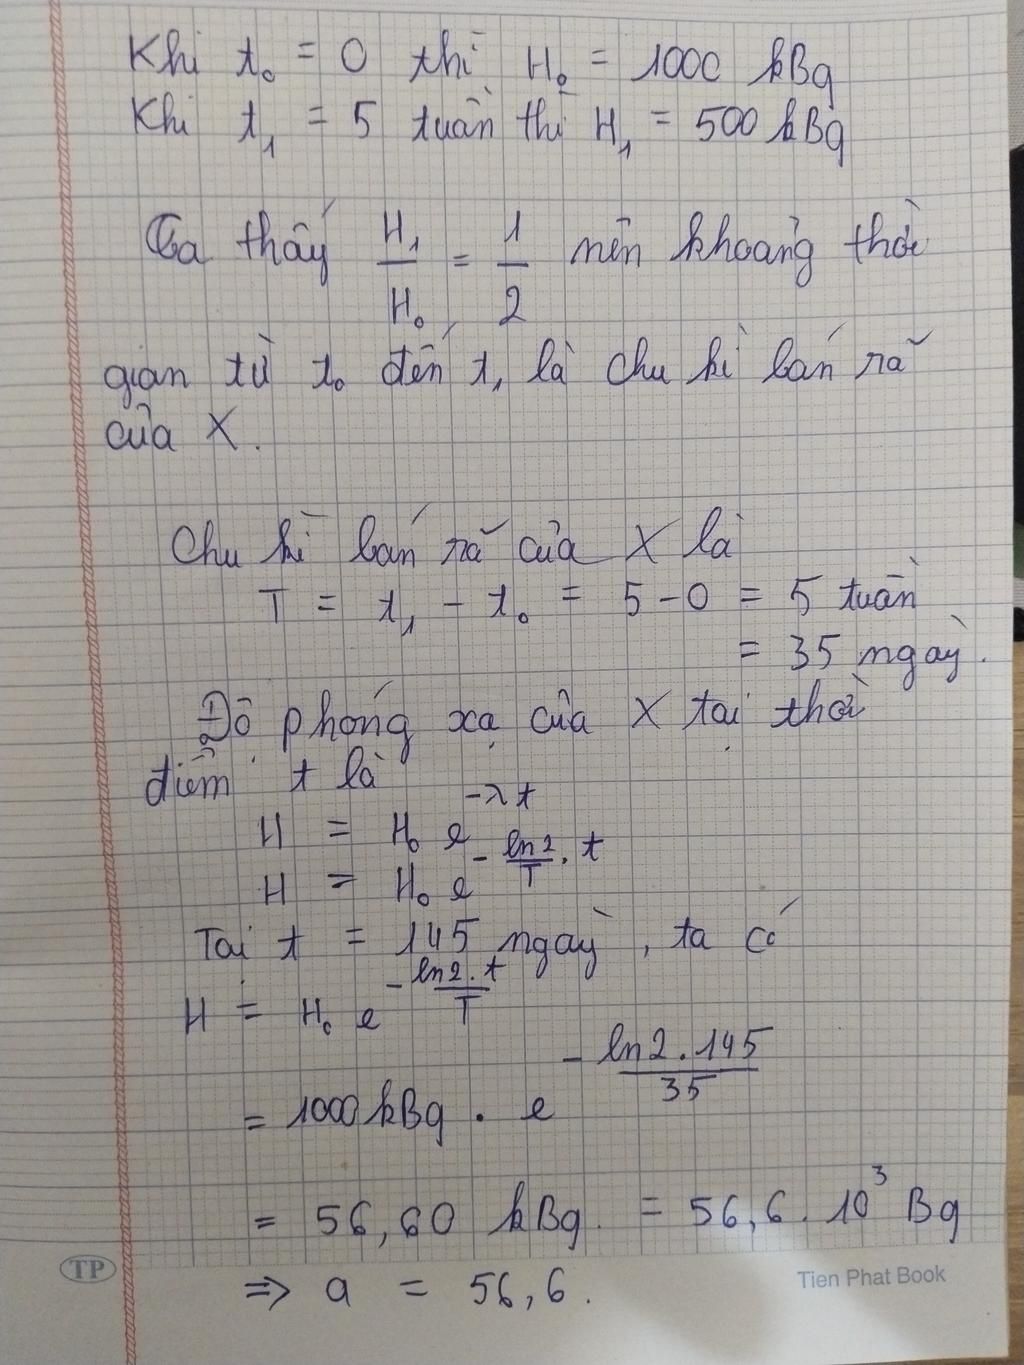 Khi t₀ = 0 thì H₀ = 1000 kBq
Khi t₁ = 5 tuần thì H₁ = 500 kBq
Ta thấy H₁/H₀ = 1/2 nên khoảng thời
gian từ t₀ đến t₁ là chu kì bán rã
của X.
Chu kì bán rã của X là
T = t₁ - t₀ = 5 - 0 = 5 tuần
= 35 ngày.
Độ phóng xạ của X tại thời
điểm t là
H = H₀ e^(-λt)
H = H₀ e^(-ln2/T . t)
Tại t = 145 ngày, ta có
H = H₀ e^(-ln2.t/T)
= 1000 kBq . e^(-ln2.145/35)
= 56,60 kBq. = 56,6. 10³ Bq
⇒ a = 56,6.
TP
Tien Phat Book